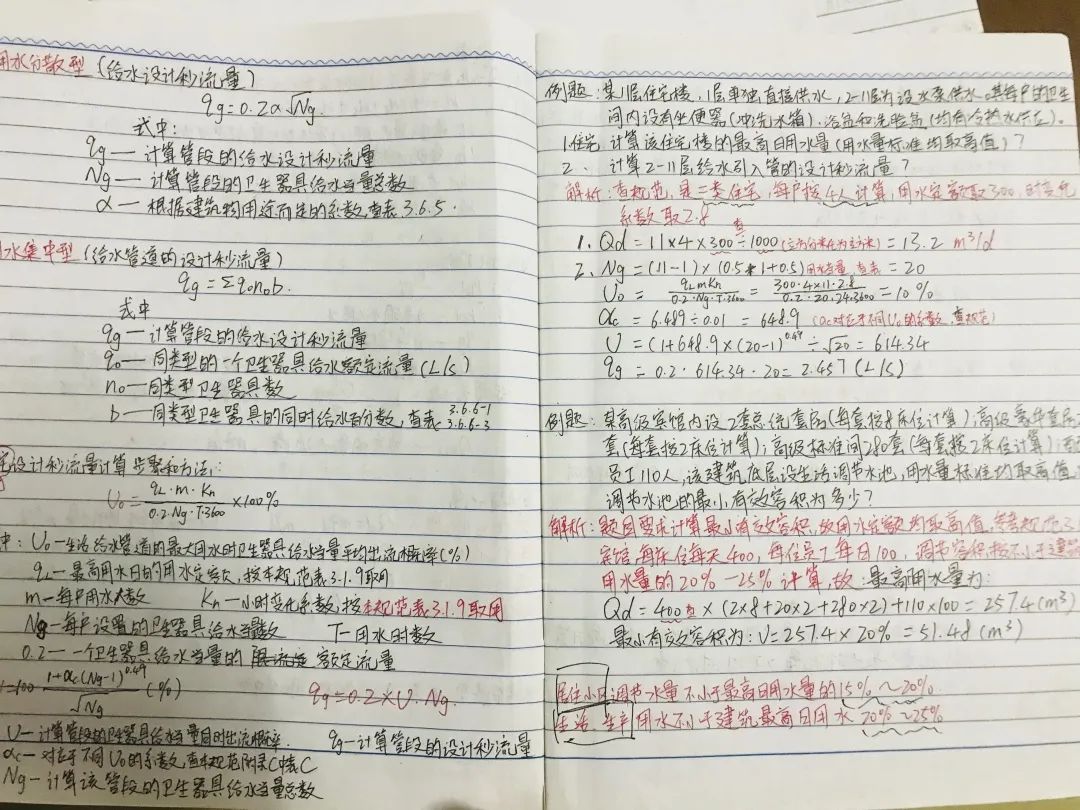 用水分散型(给水设计秒流量)
qg=0.2α√Ng.
式中:
qg—计算管段的给水设计秒流量
Ng—计算管段的卫生器具给水当量总数
α—根据建筑物用途而定的系数,查表3.6.5.
用水集中型(给水管道的设计秒流量)
qg=Σq0n0b.
式中
qg—计算管段的给水设计秒流量
q0—同类型的一个卫生器具给水额定流量(L/s)
n0—同类型卫生器具数
b—同类型卫生器具的同时给水百分数,查表 3.6.6-1 3.6.6-3
设计秒流量计算步骤和方法:
U0=qL·m·Kh/0.2·Ng·T·3600 ×100%
中:U0—生活给水管道的最大用水时卫生器具给水当量平均出流概率(%)
qL—最高用水日的用水定额,按本规范表3.1.9取用
m—每户用水人数 Kh—小时变化系数,按本规范表3.1.9取用
Ng—每户设置的卫生器具给水当量数 T—用水时数
0.2—一个卫生器具给水当量的 额定流量
=100 1+αc(Ng-1)^0.49/√Ng (%)
qg=0.2×U·Ng.
U—计算管段的卫生器具给水当量同时出流概率.
qg—计算管段的设计秒流量
αc—对应于不同U0的系数,查本规范附录C中表C
Ng—计算该管段的卫生器具给水当量总数
例题:某11层住宅楼,1层单独直接供水,2-11层为设水泵供水。其每户的卫生
间内设有坐便器(冲洗水箱).浴盆和洗脸盆(均有冷热水供应).
1.住宅:计算该住宅楼的最高日用水量(用水量标准均取高值)?
2. 计算2-11层给水引入管的设计秒流量?
解析:查规范,是二类住宅,每户按4人计算,用水定额取300,时变化
系数取2.8
1. Qd=11×4×300÷1000(立方分米化为立方米)=13.2 m³/d
2. Ng=(11-1)×(0.5+1+0.5)用水当量,查表=20
U0=qLmKh/0.2·Ng·T·3600=300·4×11·2.8/0.2·20·24·3600=10%
αc=6.489÷0.01=648.9(αc对应于不同U0的系数,查规范)
U=(1+648.9×(20-1)^0.49÷√20=614.34
qg=0.2·614.34·20=2.457(L/s)
例题:某高级宾馆内设2套总统套房(每套按8床位计算);高级豪华套房
套(每套按2床位计算);高级标准间280套(每套按2床位计算);
员工110人,该建筑底层设生活调节水池,用水量标准均取高值
调节水池的最小有效容积为多少?
解析:题目要求计算最小有效容积,故用水定额均取高值,查规范3.
宾馆,每床位每天400,每位员工每日100,调节容积按不小于建筑
用水量的20%-25%计算,故:最高用水量为:
Qd=400×(2×8+20×2+280×2)+110×100=257.4(m³)
最小有效容积为:V=257.4×20%=51.48(m³)
居住小区调节水量不小于最高日用水量的15%~20%.
生活、生产用水不小于建筑最高日用水20%~25%